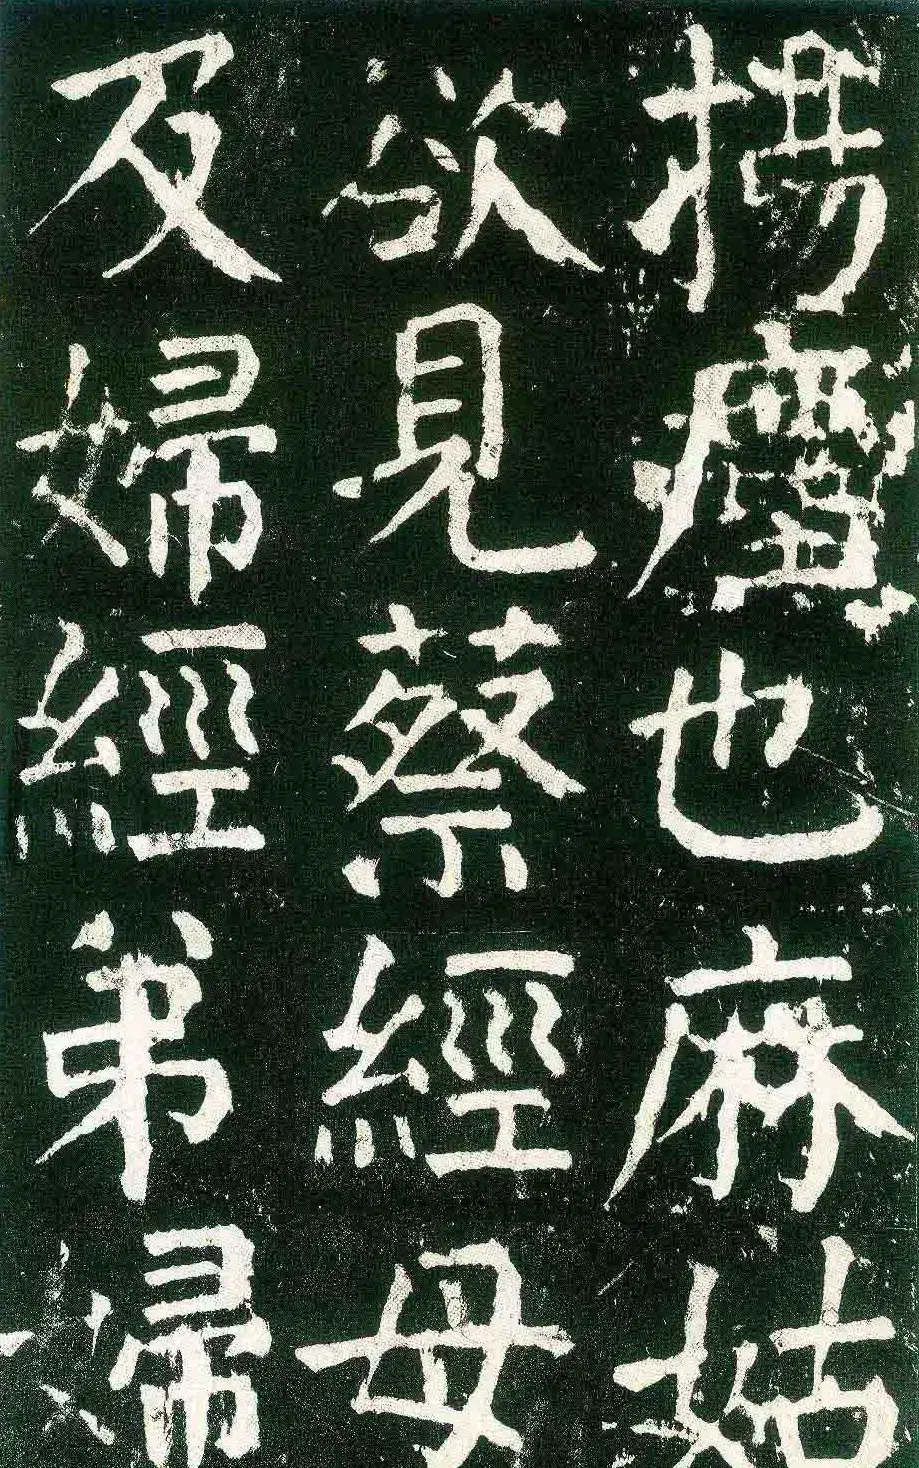 揚塵也麻姑
欲見蔡經母
及婦經弟婦